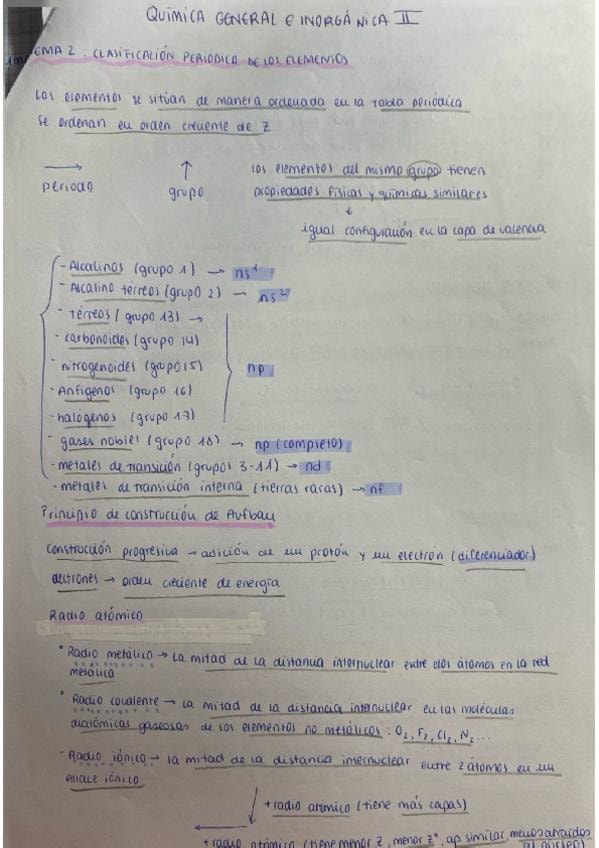 QUÍMICA GENERAL E INORGÁNICA II
TEMA 2. CLASIFICACIÓN PERIODICA DE LOS ELEMENTOS
Los elementos se sitúan de manera ordenada en la tabla periódica
se ordenan en orden creciente de Z
→ periodo
↑ grupo
los elementos del mismo grupo tienen
propiedades físicas y químicas similares
↓
igual configuración en la capa de valencia
- Alcalinos (grupo 1) → ns¹
- Alcalino térreos (grupo 2) → ns²
- térreos (grupo 13) →
- carbonoides (grupo 14)
- nitrogenoides (grupo 15) np
- Anfígenos (grupo 16)
- halógenos (grupo 17)
- gases nobles (grupo 18) → np (completo)
- metales de transición (grupos 3-11) → nd
- metales de transición interna (tierras raras) → nf
Principio de construcción de Aufbau
construcción progresiva → adición de un protón y un electrón (diferenciador)
electrones → orden creciente de energía
Radio atómico
· Radio metálico → la mitad de la distancia internuclear entre dos átomos en la red
metálica
· Radio covalente → la mitad de la distancia internuclear en las moléculas
diatómicas gaseosas de los elementos no metálicos: O₂, F₂, Cl₂, N₂...
· Radio iónico → la mitad de la distancia internuclear entre 2 átomos en un
enlace iónico
↓ + radio atómico (tiene más capas)
← + radio atómico (tiene menor Z, menor Z*, ap similar, menos atraídos
al núcleo)